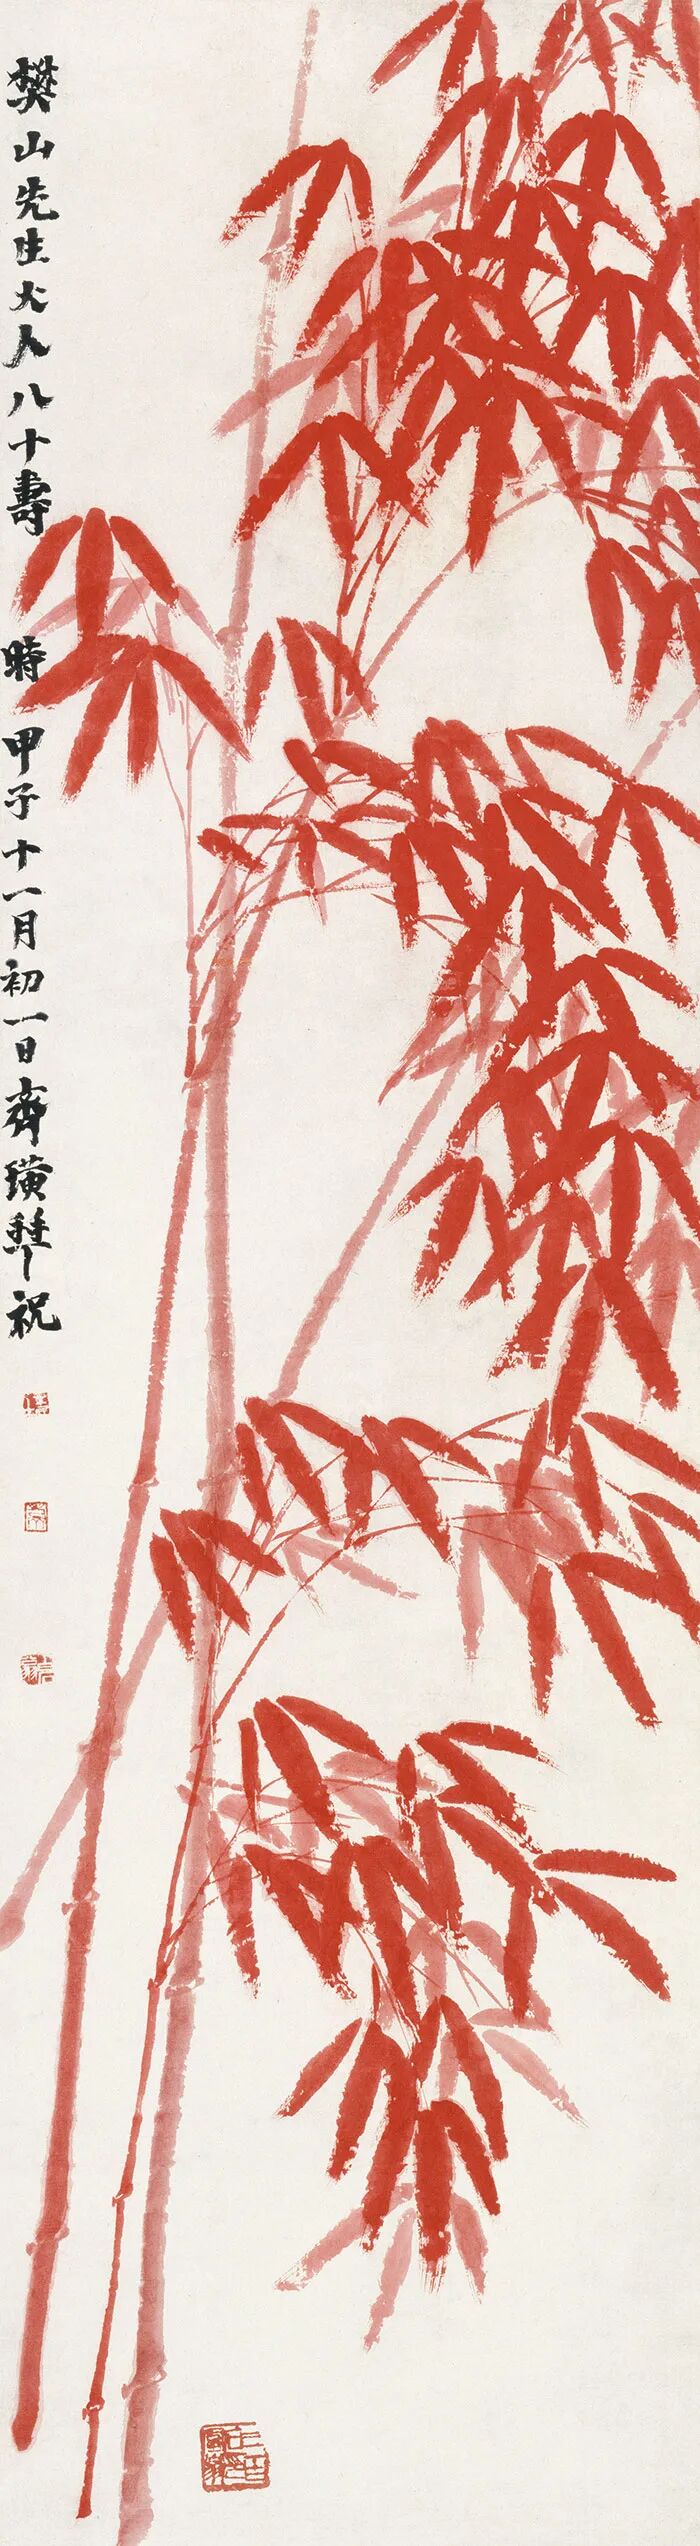 樊山先生大人八十壽 時甲子十一月初一日齊璜拜祝